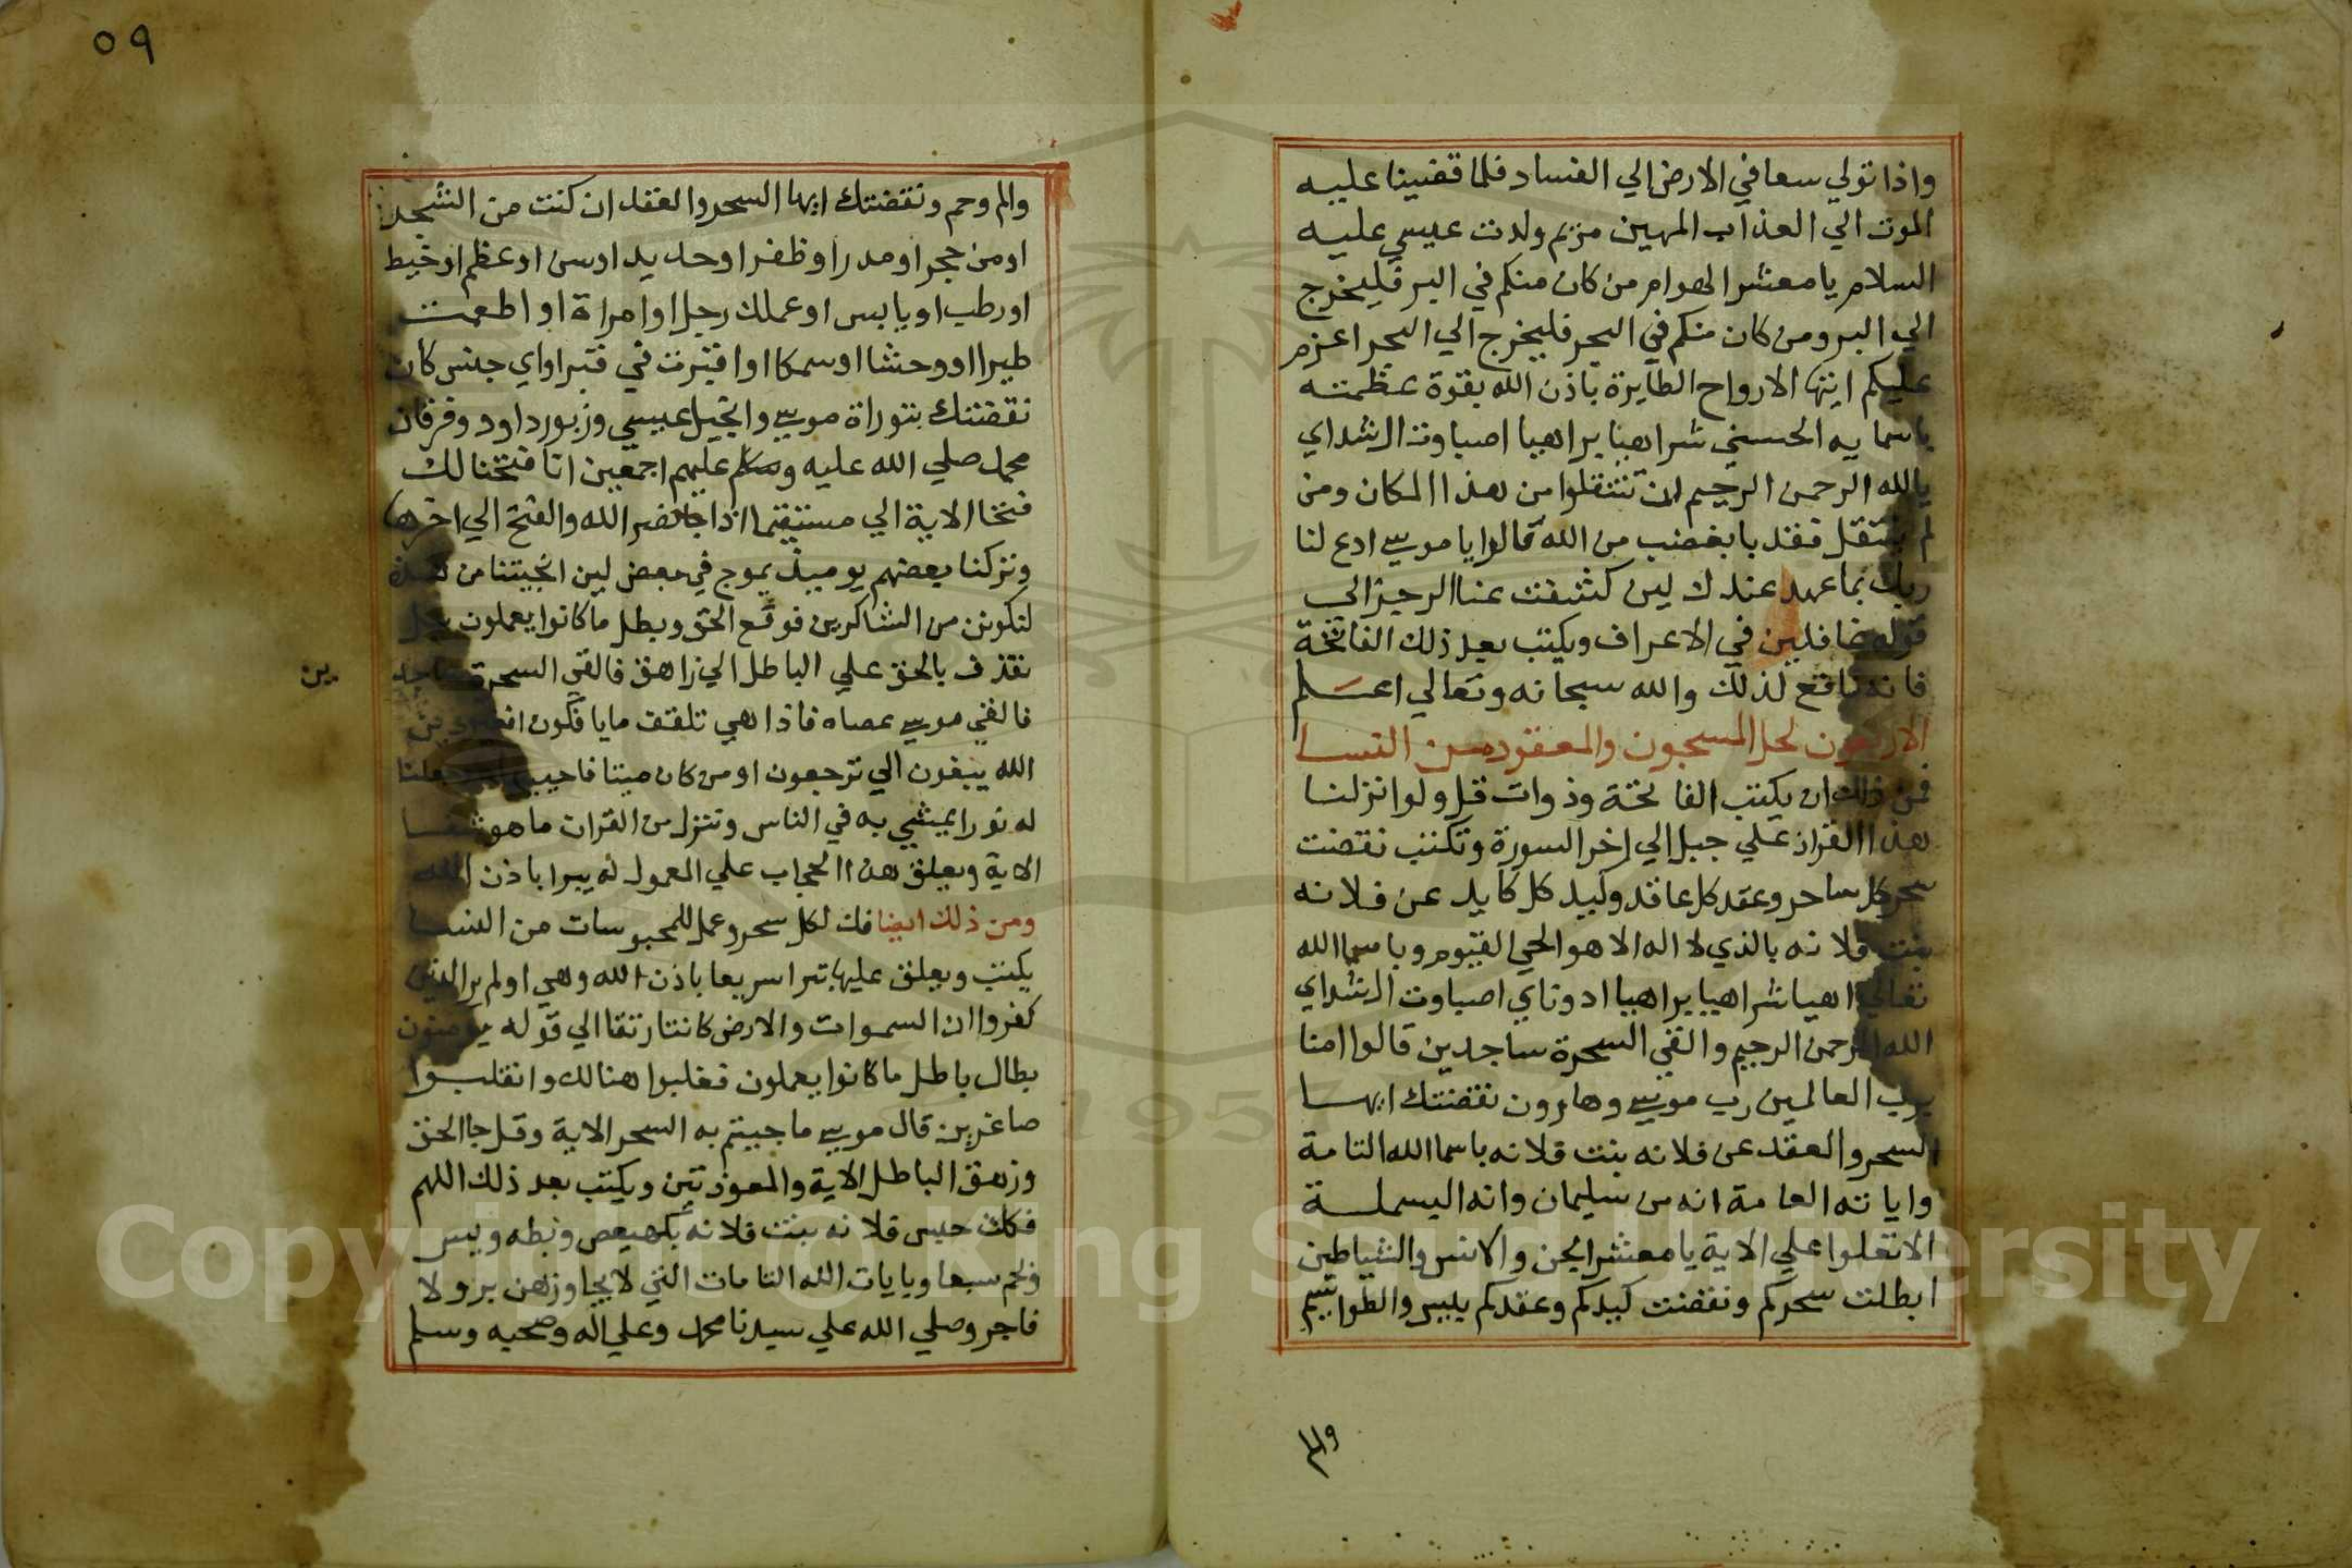 واذا تولي سعا في الارض الي الفساد فلما قضينا عليه
الموت الي العذاب المهين مريم ولدت عيسي عليه
السلام يا معشر الهوام من كان منكم في البر فليخرج
الي البر ومن كان منكم في البحر فليخرج الي البحر اعزم
عليكم ايتها الارواح الطايرة باذن الله بقوة عظمته
باسمايه الحسني شراهيا براهيا اصباوت الشداي
يالله الرحمن الرحيم ان تنتقلوا من هذا المكان ومن
لم ينتقل فقد با بغضب من الله قالوا يا موسي ادع لنا
ربك بما عهد عندك لين كشفت عنا الرجز الي
قوله غافلين في الاعراف ويكتب بعد ذلك الفاتحة
فانه نافع لذلك والله سبحانه وتعالي اعلم
الاربعون لحل المسجون والمعقود من النسا
فمن ذلك ان يكتب الفاتحة وذوات قل ولو انزلنا
هذا القران علي جبل الي اخر السورة وتكتب نقضت
سحر كل ساحر وعقد كل عاقد وكيد كل كايد عن فلانه
بنت فلانه بالذي لا اله الا هو الحي القيوم وباسما الله
تعالي اهيا شراهيا براهيا ادوناي اصباوت الشداي
الله الرحمن الرحيم والقي السحرة ساجدين قالوا امنا
برب العالمين رب موسي وهارون نقضتك ايها
السحر والعقد عن فلانه بنت فلانه باسما الله التامة
واياته العامة انه من سليمان وانه البسملة
الا تعلوا علي الاية يا معشر الجن والانس والشياطين
ابطلت سحركم ونقضت كيدكم وعقدكم بيس والطواسيم
والم وحم ونقضتك ايها السحر والعقد ان كنت من الشجر
او من حجر او مدر او ظفر او حديد او سن او عظم او خيط
او رطب او يابس او عملك رجل او امراة او اطعمت
طيرا او وحشا او سمكا او اقبرت في قبر او اي جنس كان
نقضتك بتوراة موسي وانجيل عيسي وزبور داود وفرقان
محمد صلي الله عليه وسلم عليهم اجمعين انا فتحنا لك
فتحا الاية الي مستقيما اذا جا نصر الله والفتح الي اخرها
وتركنا بعضهم يوميذ يموج في بعض لين انجيتنا من هذه
لنكونن من الشاكرين فوقع الحق وبطل ما كانوا يعملون بل
نقذف بالحق علي الباطل الي زاهق فالقي السحرة ساجد
ين
فالقي موسي عصاه فاذا هي تلقف ما يافكون افغير دين
الله يبغون الي ترجعون او من كان ميتا فاحييناه وجعلنا
له نورا يمشي به في الناس وننزل من القران ما هو شفا
الاية ويعلق هذا الحجاب علي المعمول له يبرا باذن الله
ومن ذلك ايضا فك لكل سحر وعمل للمحبوسات من النسا
يكتب ويعلق عليها تبرا سريعا باذن الله وهي اولم ير الذين
كفروا ان السموات والارض كانتا رتقا الي قوله يومنون
بطال باطل ما كانوا يعملون فغلبوا هنالك وانقلبوا
صاغرين قال موسي ما جيتم به السحر الاية وقل جا الحق
وزهق الباطل الاية والمعوذتين ويكتب بعد ذلك اللهم
فك حبس فلانه بنت فلانه بكهيعص وبطه وبيس
وحم سبعا وبايات الله التامات التي لا يجاوزهن بر ولا
فاجر وصلي الله علي سيدنا محمد وعلي اله وصحبه وسلم
٥٩
Copyright © King Saud University
1957